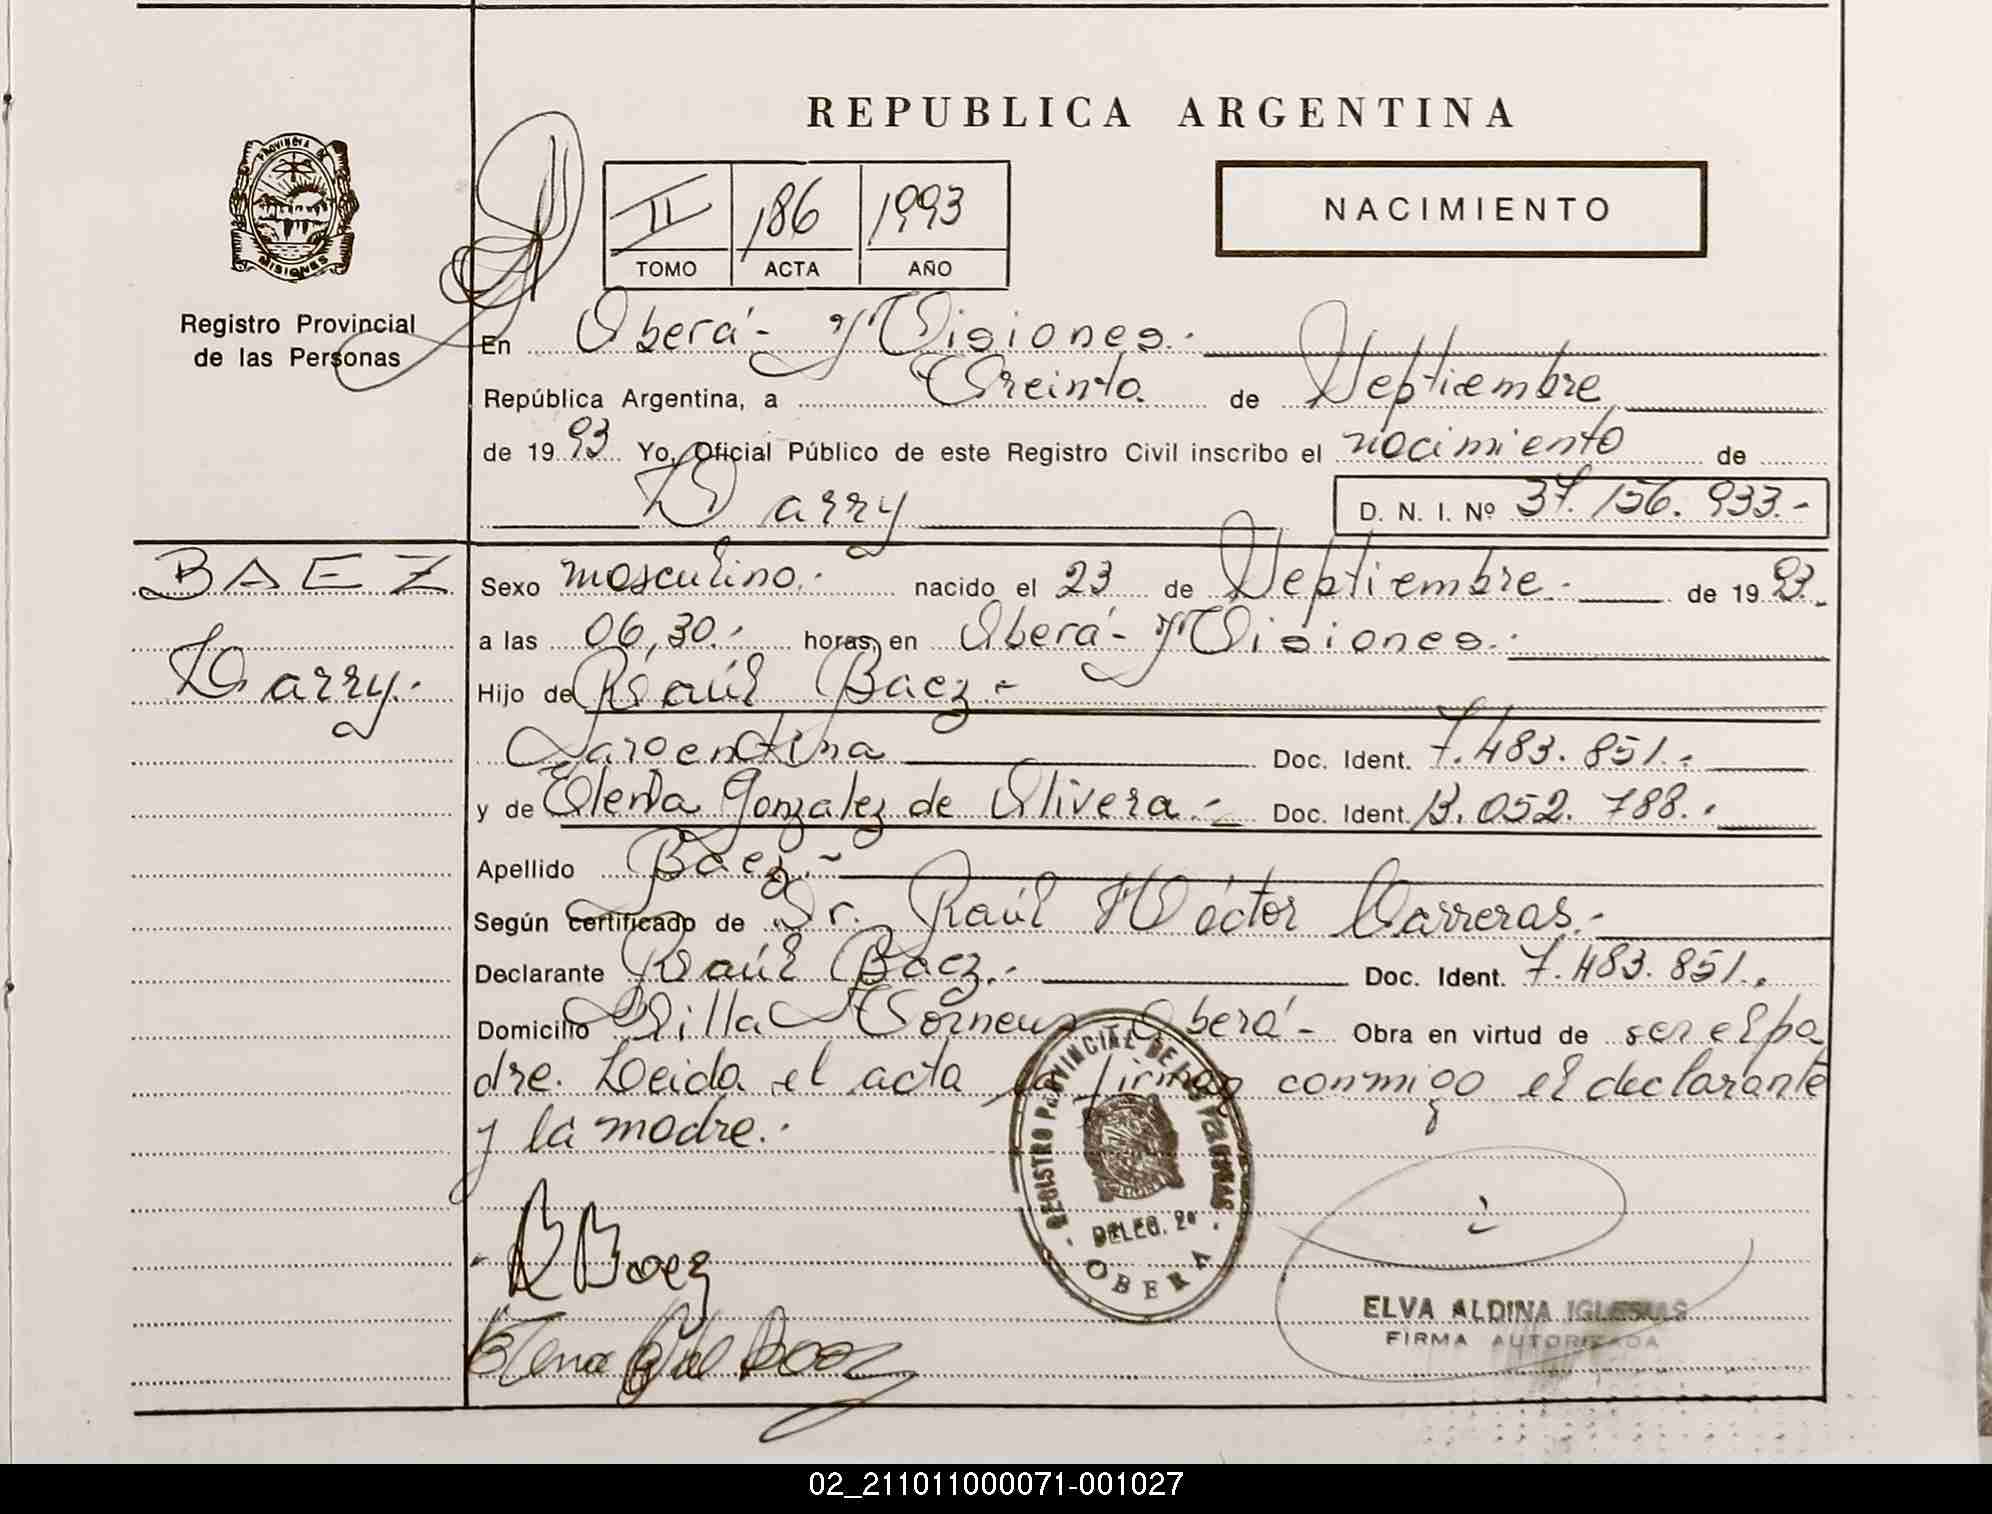 REPUBLICA ARGENTINA
PROVINCIA DE
MISIONES
Registro Provincial
de las Personas
II 186 1993
TOMO ACTA AÑO
NACIMIENTO
En Oberá - Misiones.-
República Argentina, a Treinta de Septiembre
de 1993 Yo, Oficial Público de este Registro Civil inscribo el nacimiento de
Darry D. N. I. Nº 37.156.933.-
BAEZ
Darry.-
Sexo masculino.- nacido el 23 de Septiembre.- de 1993.
a las 06,30.- horas, en Oberá - Misiones.-
Hijo de Raúl Baez.-
Argentina Doc. Ident. 7.483.851.-
y de Elena Gonzalez de Olivera.- Doc. Ident. 052.788.-
Apellido Baez.-
Según certificado de Dr. Raúl Héctor Carreras.-
Declarante Raúl Baez.- Doc. Ident. 7.483.851.-
Domicilio Villa Oberá- Obra en virtud de ser el pa
dre. Leida el acta la firman conmigo el declarante
y la madre.-
REGISTRO PROVINCIAL DE LAS PERSONAS
DELEG. 2ª
OBERA
R Baez
Elena de Baez
ELVA ALDINA IGLESIAS
FIRMA AUTORIZADA
02_211011000071-001027